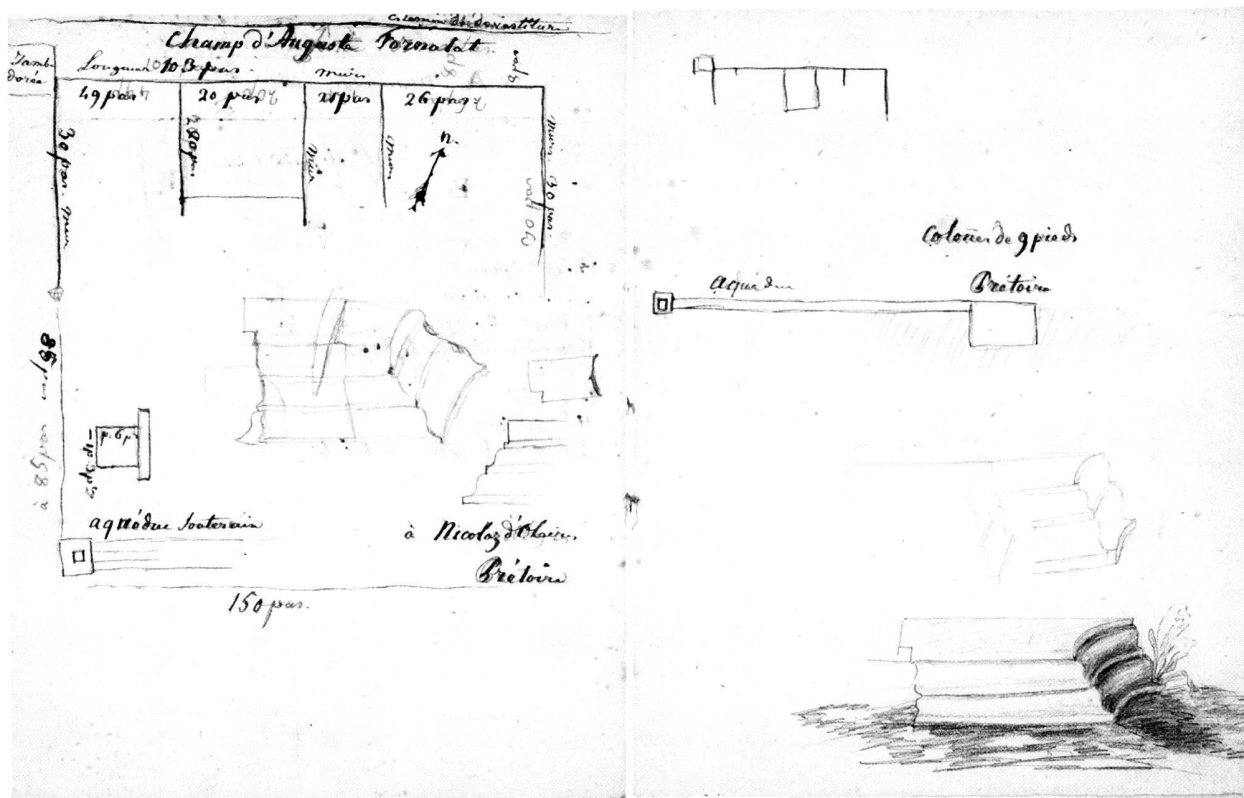 Chemin de
Champ d'Auguste Fornalat.
Jambe
dorée
Longueur 103 pas. murs
49 pas
20 pas
21 pas
26 pas
30 pas. mur
20 pas
mur
mur
n.
Murs. 30 pas.
à 85 pas
p. 6 p
aquéduc souterain
à Nicolaz
Prétoire
150 pas.
Colones de 9 pieds
aqueduc
Prétoire